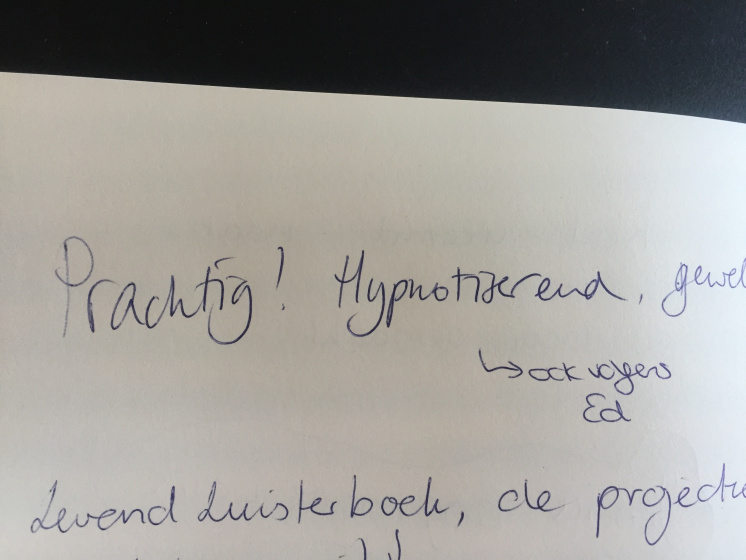 Prachtig! Hypnotiserend, gewel
↳ ook volgens
Ed
Levend Luisterboek, de projectie